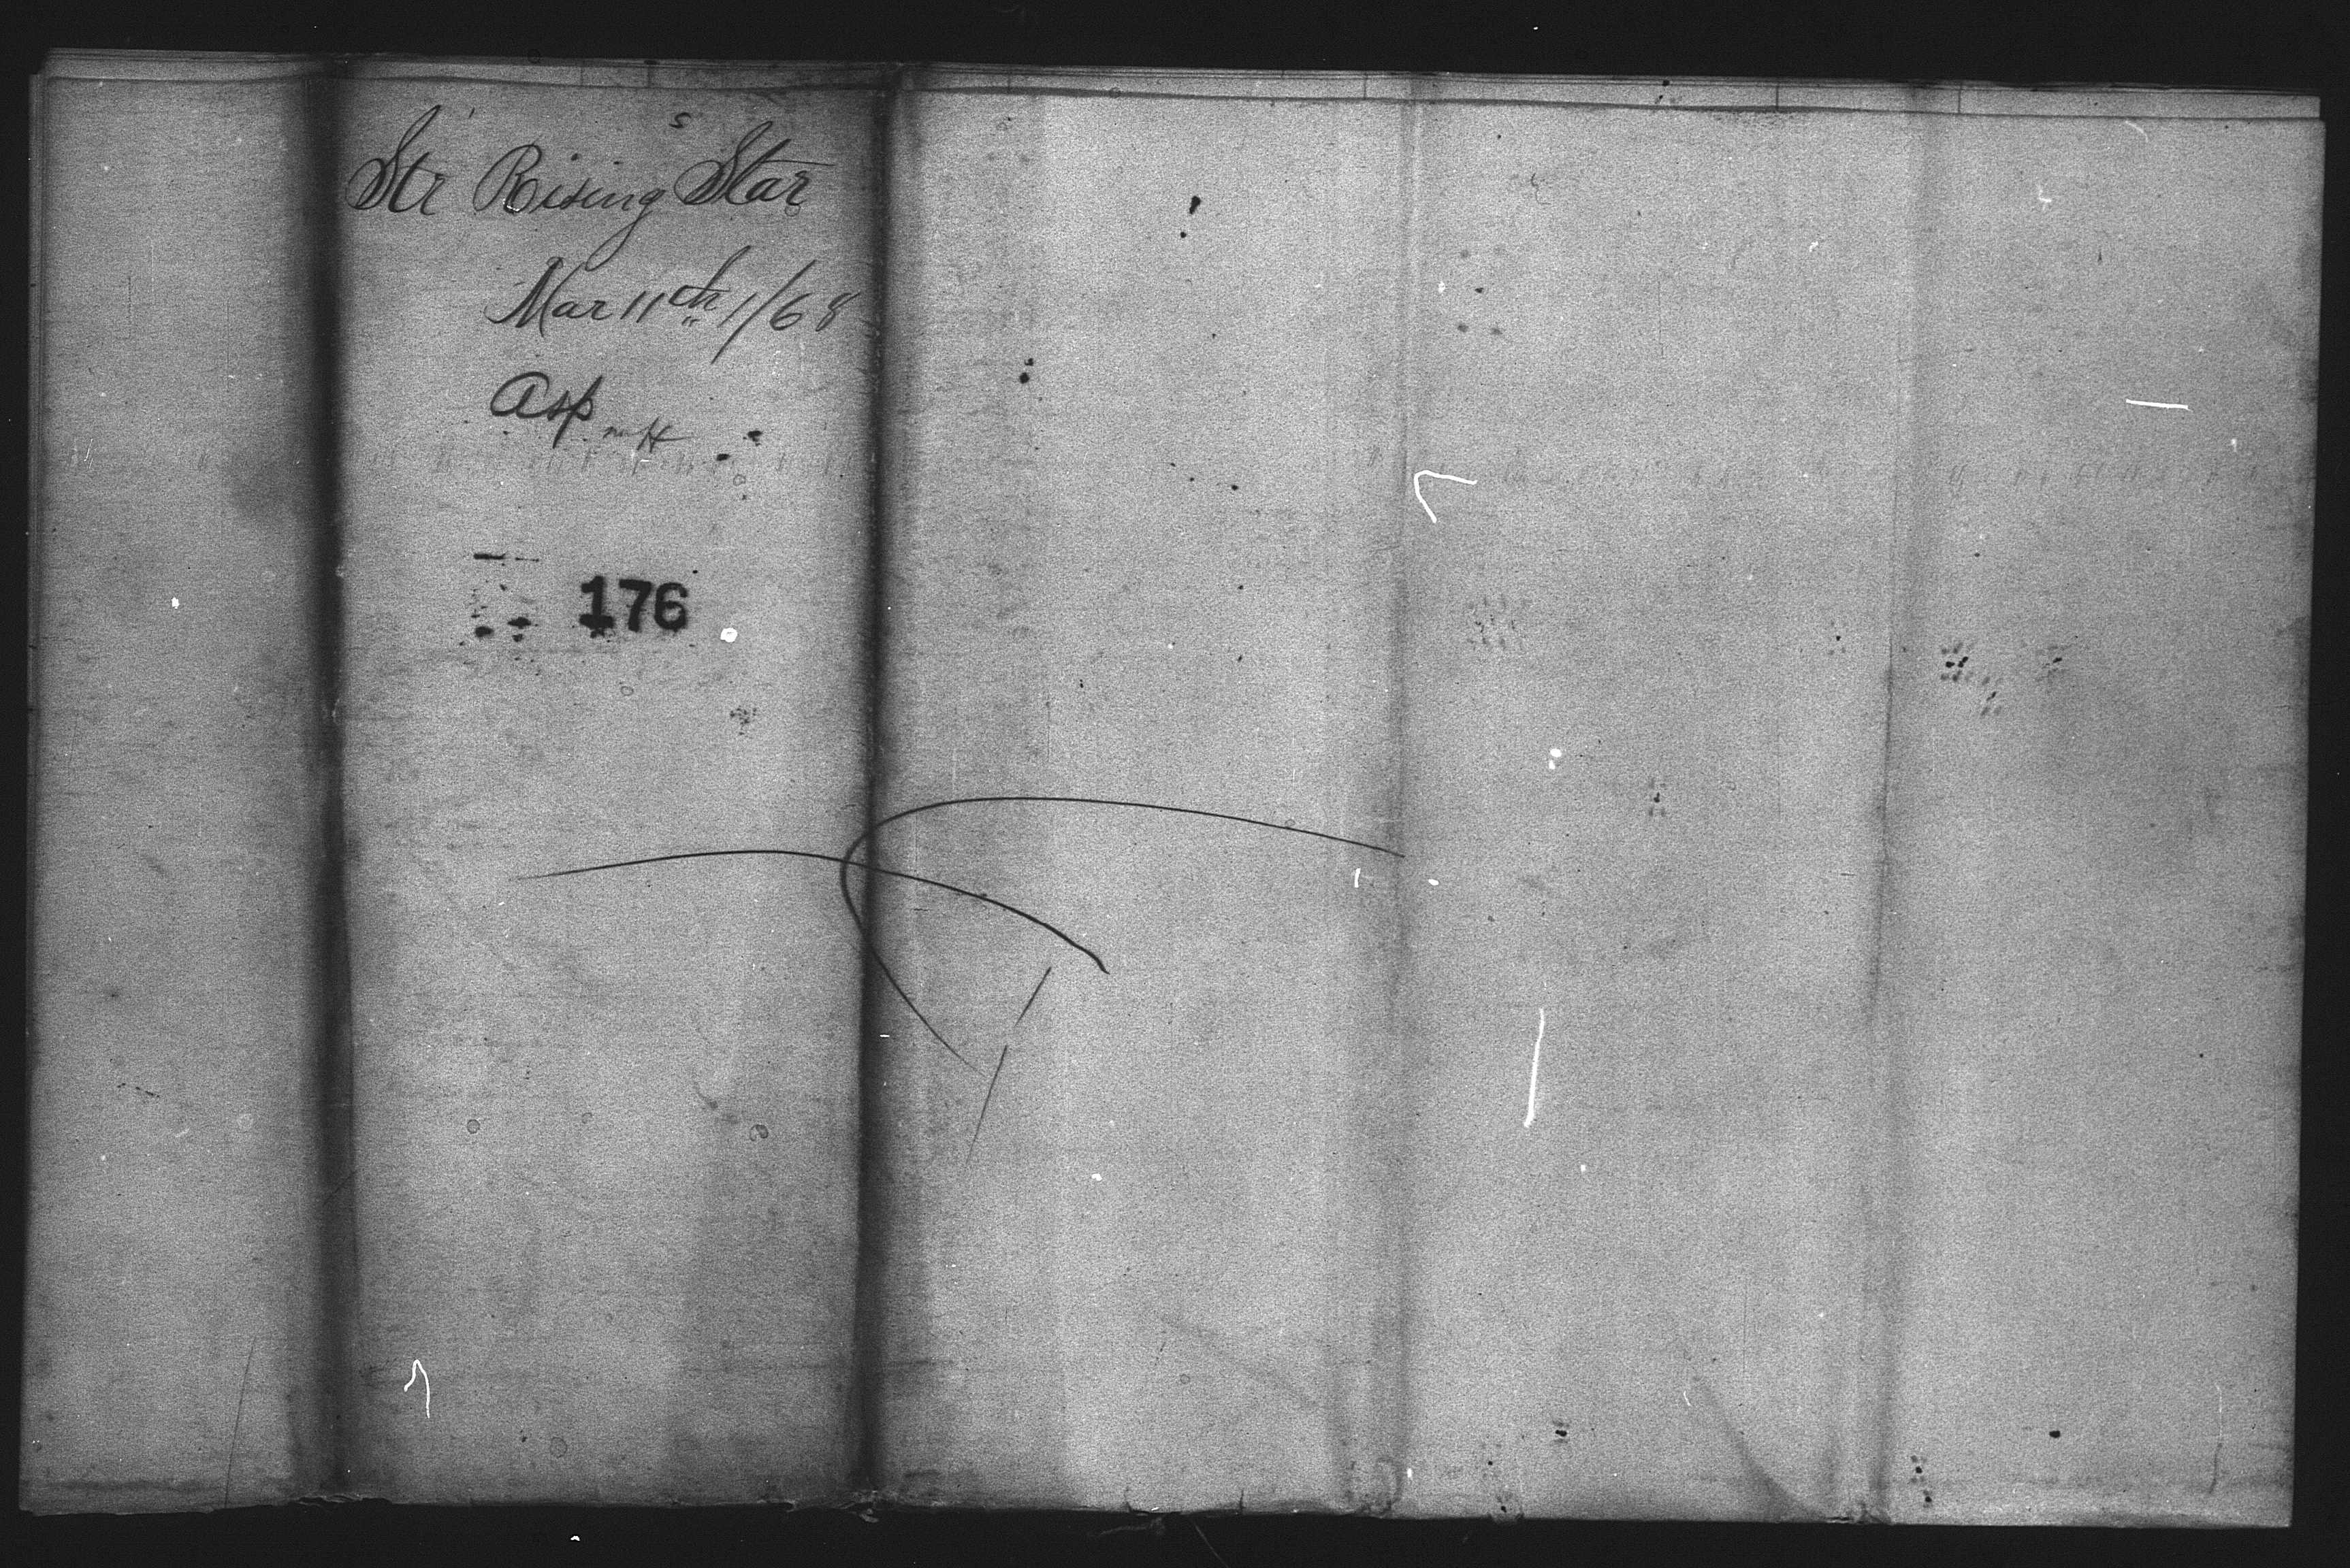 Str Rising Star
Mar 11th 1/68
Asp
176